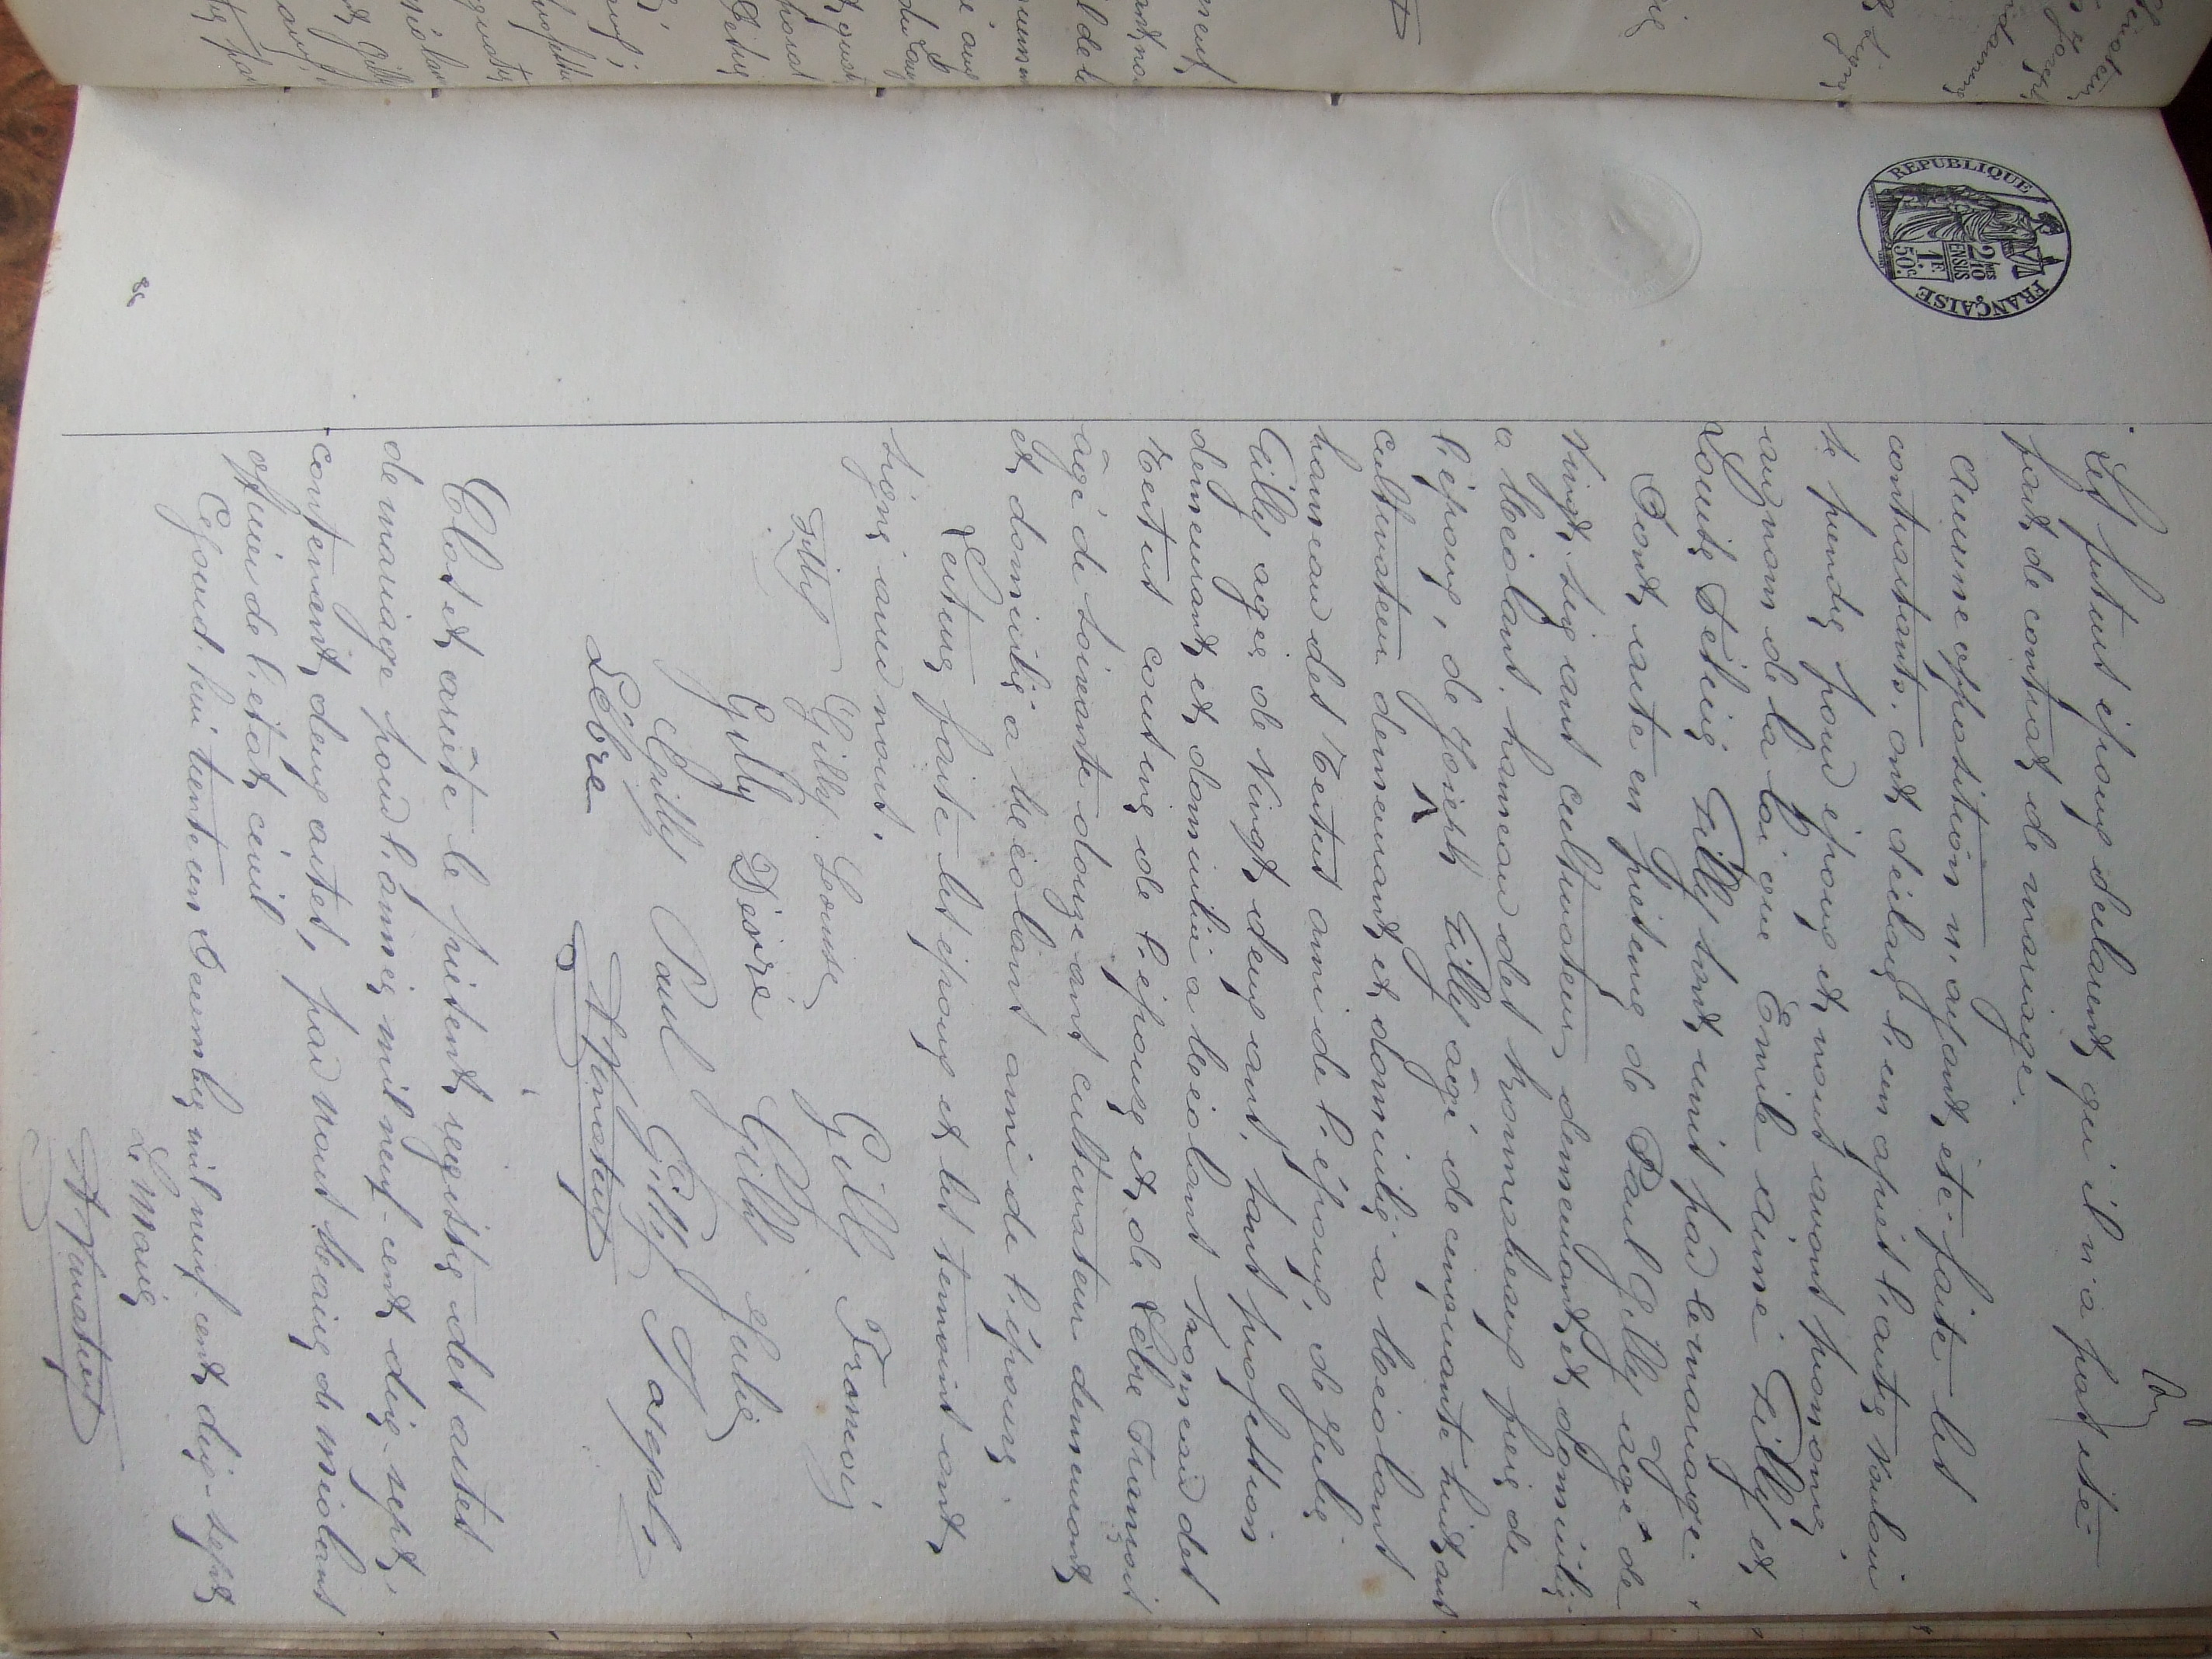 Les futurs époux déclarent qu'il n'a pas été
fait de contrat de mariage.
Aucune opposition n'ayant été faite les
contractants. ont déclaré l'un après l'autre vouloir
se prendre pour époux et nous avons prononcé
au nom de la loi que Emile aimé Gilly et
Louise Gilly sont unis par le mariage.
Dont acte en présence de Paul Gilly agé de
vingt six ans cultivateur demeurant et domicilié
a Méolans. hameau des frère de
l'époux, de Joseph Gilly âgé de cinquante huit ans
cultivateur demeurant et domicilié a Méolans
hameau des ami de l'époux, de Julie
Gilly agée de vingt deux ans, sans profession
demeurant et domicilié a Méolans hameau des
cousine de l'épouse et de Lèbre François
âgé de soixante douze ans cultivateur demeurant
et domicilié a Méolans ami de l'épouse.
Lecture faite les époux et les temoins ont
signé avec nous.
Gilly Gilly Louise Gilly
Gilly Désiré Gilly Julie
Gilly Paul Gilly Joseph
Lèbre
Clos et arrêté le présent registre des actes
de mariage pour l'année mil neuf-cent dix-sept,
contenant deux actes, par nous maire de méolans
officier de l'état civil
Cejourd'hui trente un Décembre mil neuf cent dix-sept
Le Maire
RÉPUBLIQUE FRANÇAISE
2/10 EN SUS
1F 50c.